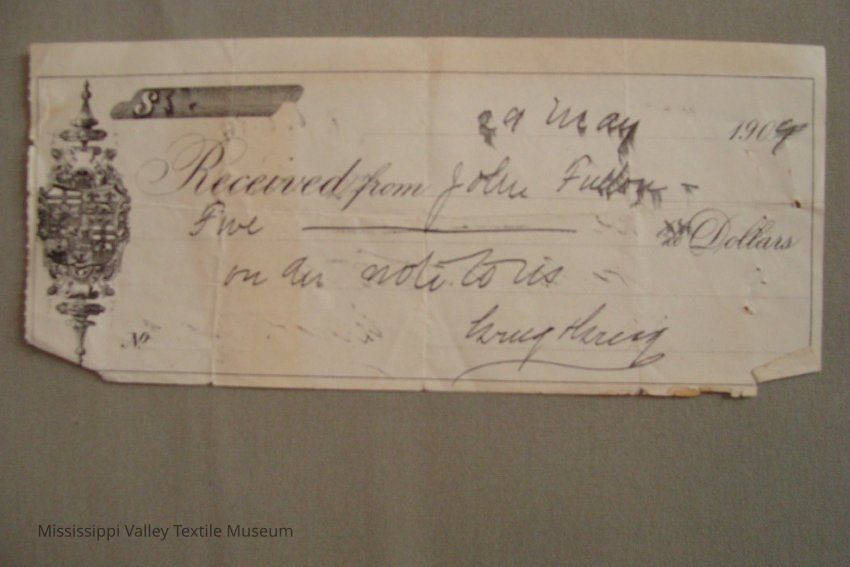 $5.
29 May 1909
Received from John Fulton -
Five Dollars
on der note to us
Greig & Greig
No
Mississippi Valley Textile Museum